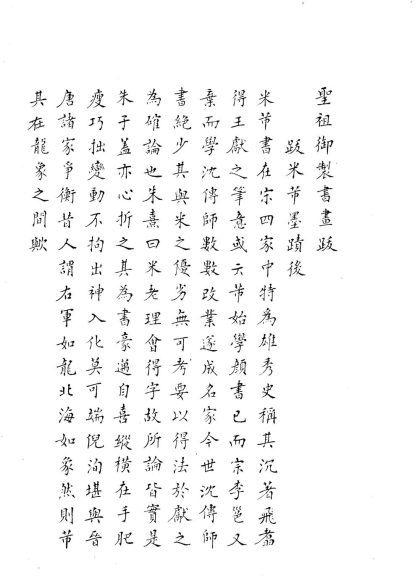 聖祖御製書畫跋
跋米芾墨蹟後
米芾書在宗四家中特為雄秀史稱其沉著飛翥
得王獻之筆意或云芾始學顏書已而宗李邕又
棄而學沈傳師數數改業遂成名家今世沈傳師
書絶少其與米之優劣無可考要以得法於獻之
為確論也朱熹曰米老理會得字故所論皆實是
朱子蓋亦心折之其為書豪邁自喜縱橫在手肥
瘦巧拙變動不拘出神入化莫可端倪洵堪與晉
唐諸家爭衡昔人謂右軍如龍北海如象然則芾
其在龍象之間歟